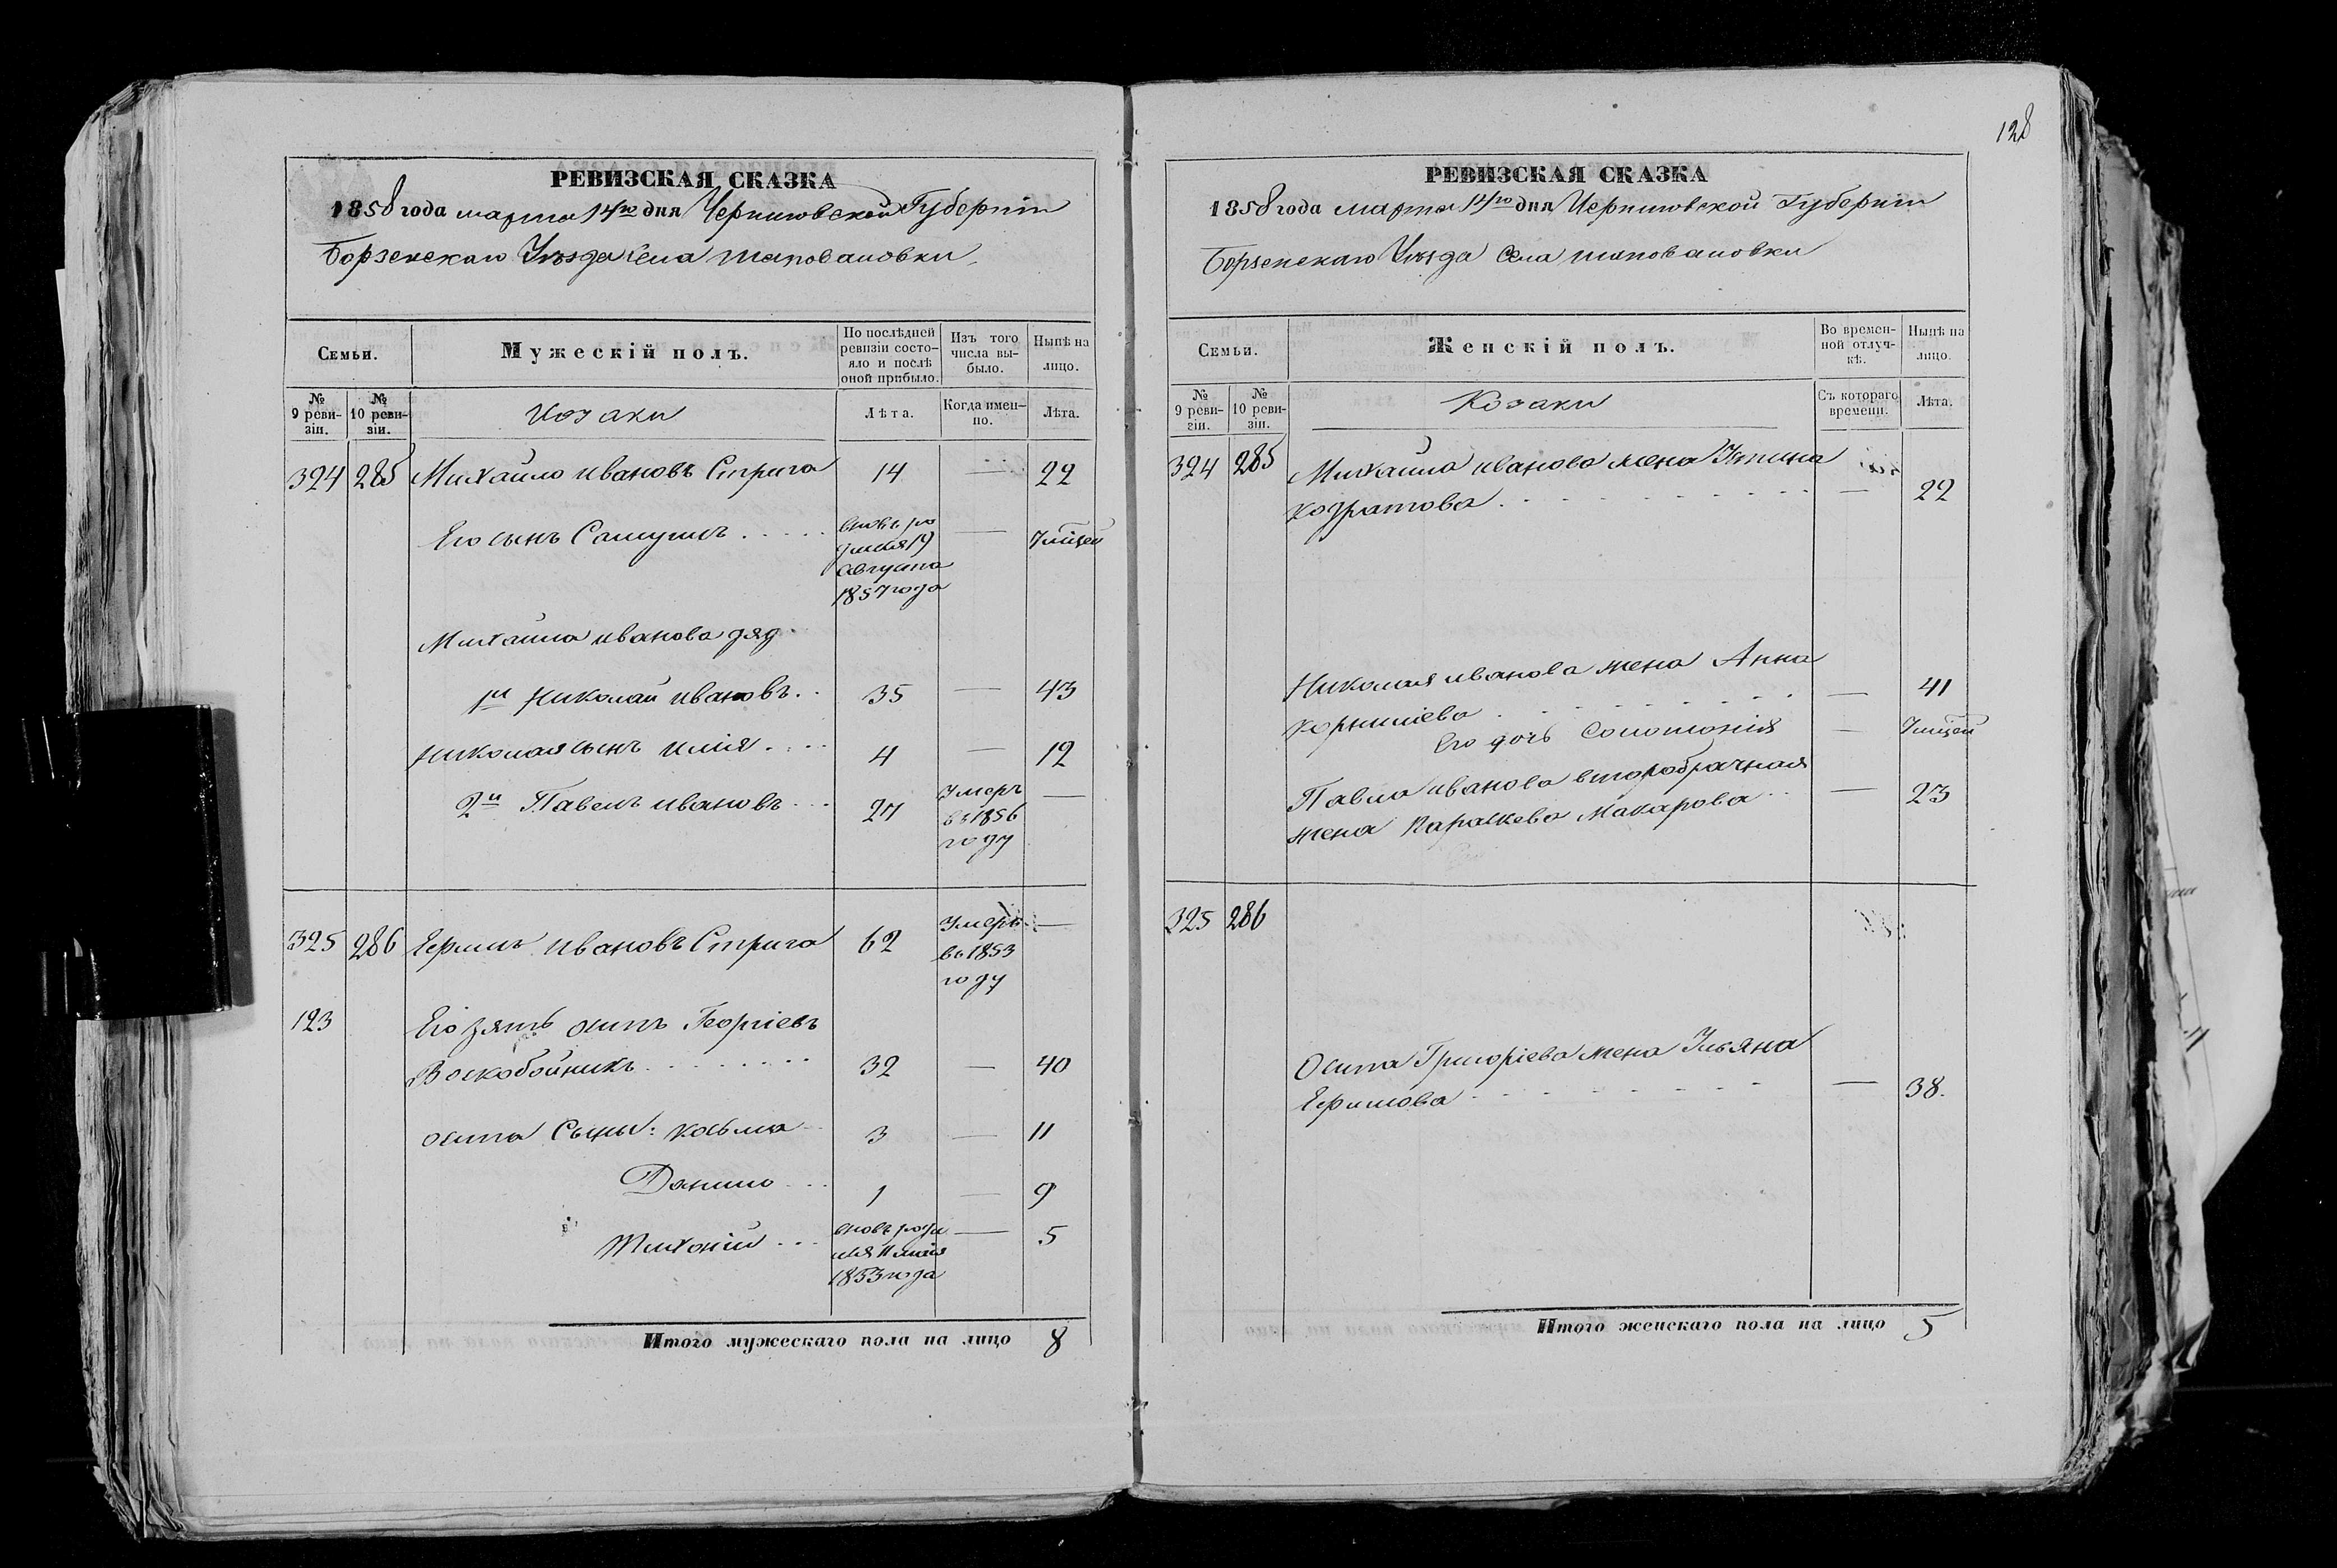 128
РЕВИЗСКАЯ СКАЗКА
1858 года марта 14го дня Черниговской Губернiи
Борзенскаго Уѣзда Села Шаповаловки
Семьи.
Мужескiй полъ.
По послѣдней ревизiи состояло и послѣ оной прибыло.
Изъ того числа выбыло.
Нынѣ на лицо.
№ 9 ревизiи.
№ 10 ревизiи.
Козаки
Лѣта.
Когда именно.
Лѣта.
324 285 Михайло Ивановъ Стрига 14 — 22
Его сынъ Самуилъ ..... вновь ро — 7 мѣсяц
дился 19
августа
1857 года
Михаила Иванова дяд.
1й Николай Ивановъ .. 35 — 43
Николая сынъ Илiя .... 4 — 12
2й Павелъ Ивановъ ... 27 Умеръ —
въ 1856
году
325 286 Ефимъ Ивановъ Стрига 62 Умеръ —
въ 1853
году
123 Его зять Осипъ Георгiевъ
Воскобойникъ ........ 32 — 40
Осипа Сыны: Косьма 3 — 11
Данило ... 1 — 9
Тихонiй ... вновь роди — 5
лся 11 мая
1853 года
Итого мужескаго пола на лицо 8
РЕВИЗСКАЯ СКАЗКА
1858 года марта 14го дня Черниговской Губернiи
Борзенскаго Уѣзда Села Шаповаловки
Семьи.
Женскiй полъ.
Во временной отлучкѣ.
Нынѣ на лицо.
№ 9 ревизiи.
№ 10 ревизiи.
Козаки
Съ котораго времени.
Лѣта.
324 285 Михайла Иванова жена
Кодратова ........... — 22
Николая Иванова жена Анна
Корнилiева ........ — 41
Его дочь Соломонiя —
Павла Иванова второбрачная
жена Параскева Макарова .. — 23
325 286
Осипа Григорiева жена Ульяна
Ефимова ........ — 38.
Итого женскаго пола на лицо 5